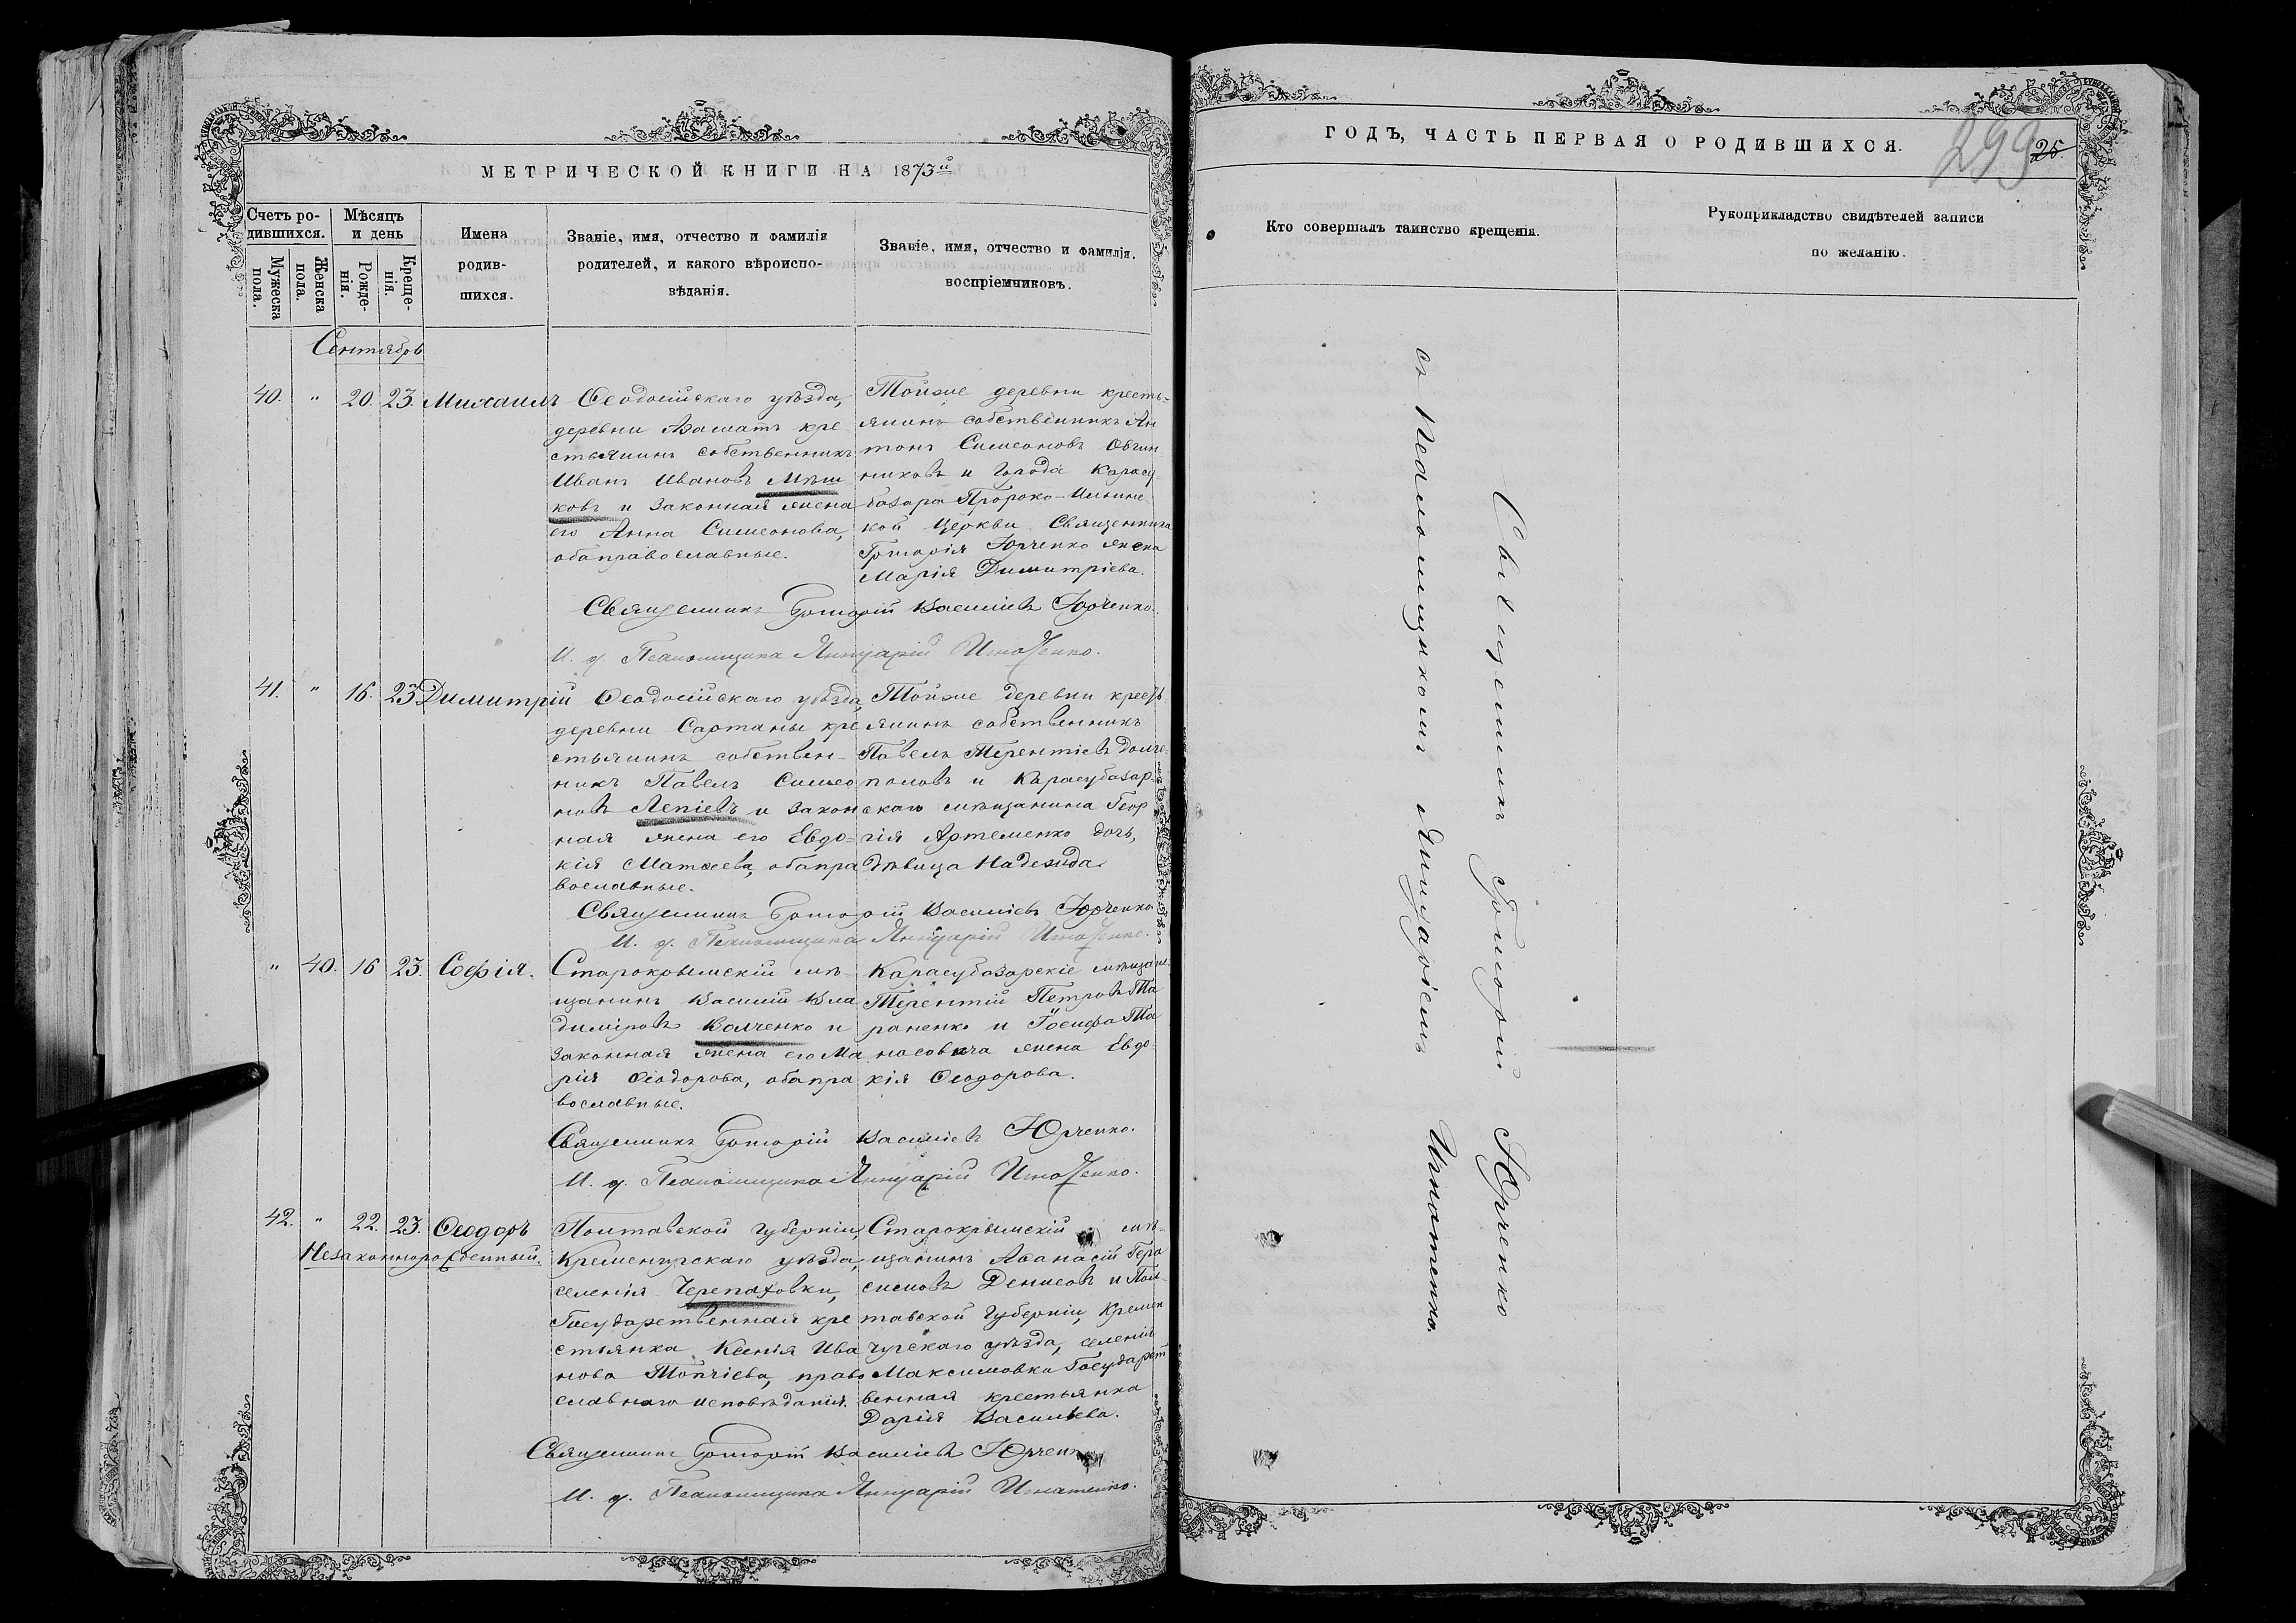 МЕТРИЧЕСКОЙ КНИГИ НА 1873й
Счетъ ро-
дившихся.
Мужеска
пола.
Женска
пола.
Мѣсяцъ
и день
Рожде-
нія.
Креще-
нія.
Имена
родив-
шихся.
Званіе, имя, отчество и фамилія
родителей, и какого вѣроиспо-
вѣданія.
Званіе, имя, отчество и фамилія.
воспріемниковъ.
Сентябрь
40. " 20. 23. Михаилъ
Ѳеодосійскаго уѣзда,
деревни Азаматъ кре-
стьянинъ собственникъ
Иванъ Ивановъ Мѣш
ковъ и законная жена
его Анна Симеонова,
оба православные.
Тойже деревни кресть-
янинъ собственникъ Ан
тонъ Симеоновъ Овчин
никовъ и города Карасу
базара Пророко-Ильинс
кой Церкви Священника
Григорія Юрченко жена
Марія Димитріева.
Священникъ Григорій Васильевъ Юрченко.
И. д. Псаломщика Яннуарій Игнатенко.
41. " 16. 23 Димитрій
Ѳеодосійскаго уѣзда,
деревни Сартаны кре
стьянинъ собствен-
никъ Павелъ Симео
новъ Лепіевъ и закон
ная жена его Евдо-
кія Матѳеева, оба пра
вославные.
Тойже деревни кресть
янинъ собственникъ
Павелъ Терентіевъ Долже-
половъ и Карасубазар-
скаго мѣщанина Геор
гія Артеменко дочь,
Дѣвица Надежда
Священникъ Григорій Васильевъ Юрченко.
И. д. Псаломщика Яннуарій Игнатенко.
" 40. 16 23. Софія.
Старокрымскій мѣ-
щанинъ Василій Вла
диміровъ Волченко и
законная жена его Ма
рія Ѳеодорова, оба пра
вославные.
Карасубазарскіе мѣщане
Терентій Петровъ Та
раненко и Іосифа Та
насовича жена Евдо-
кія Ѳеодорова.
Священникъ Григорій Васильевъ Юрченко.
И. д. Псаломщика Яннуарій Игнатенко.
42. " 22. 23. Ѳеодоръ
Незаконнорожденный.
Полтавской Губерніи,
Кременчугскаго уѣзда,
селенія Черепаховки,
Государственная кре
стьянка Ксенія Ива
нова Топчіева, право
славнаго исповѣданія.
Старокрымскій мѣ-
щанинъ Аѳанасій Гера
симовъ Денисовъ и Пол-
тавской Губерніи, Кремен
чугскаго уѣзда, селенія
Максимовки Государст
венная крестьянка
Дарія Васильева.
Священникъ Григорій Васильевъ Юрченко
И. д. Псаломщика Яннуарій Игнатенко.
ГОДЪ, ЧАСТЬ ПЕРВАЯ О РОДИВШИХСЯ.
299
25.
Кто совершалъ таинство крещенія.
Рукоприкладство свидѣтелей записи
по желанію.
Священникъ Григорій Юрченко
съ Псаломщикомъ Яннуаріемъ Игнатенко.